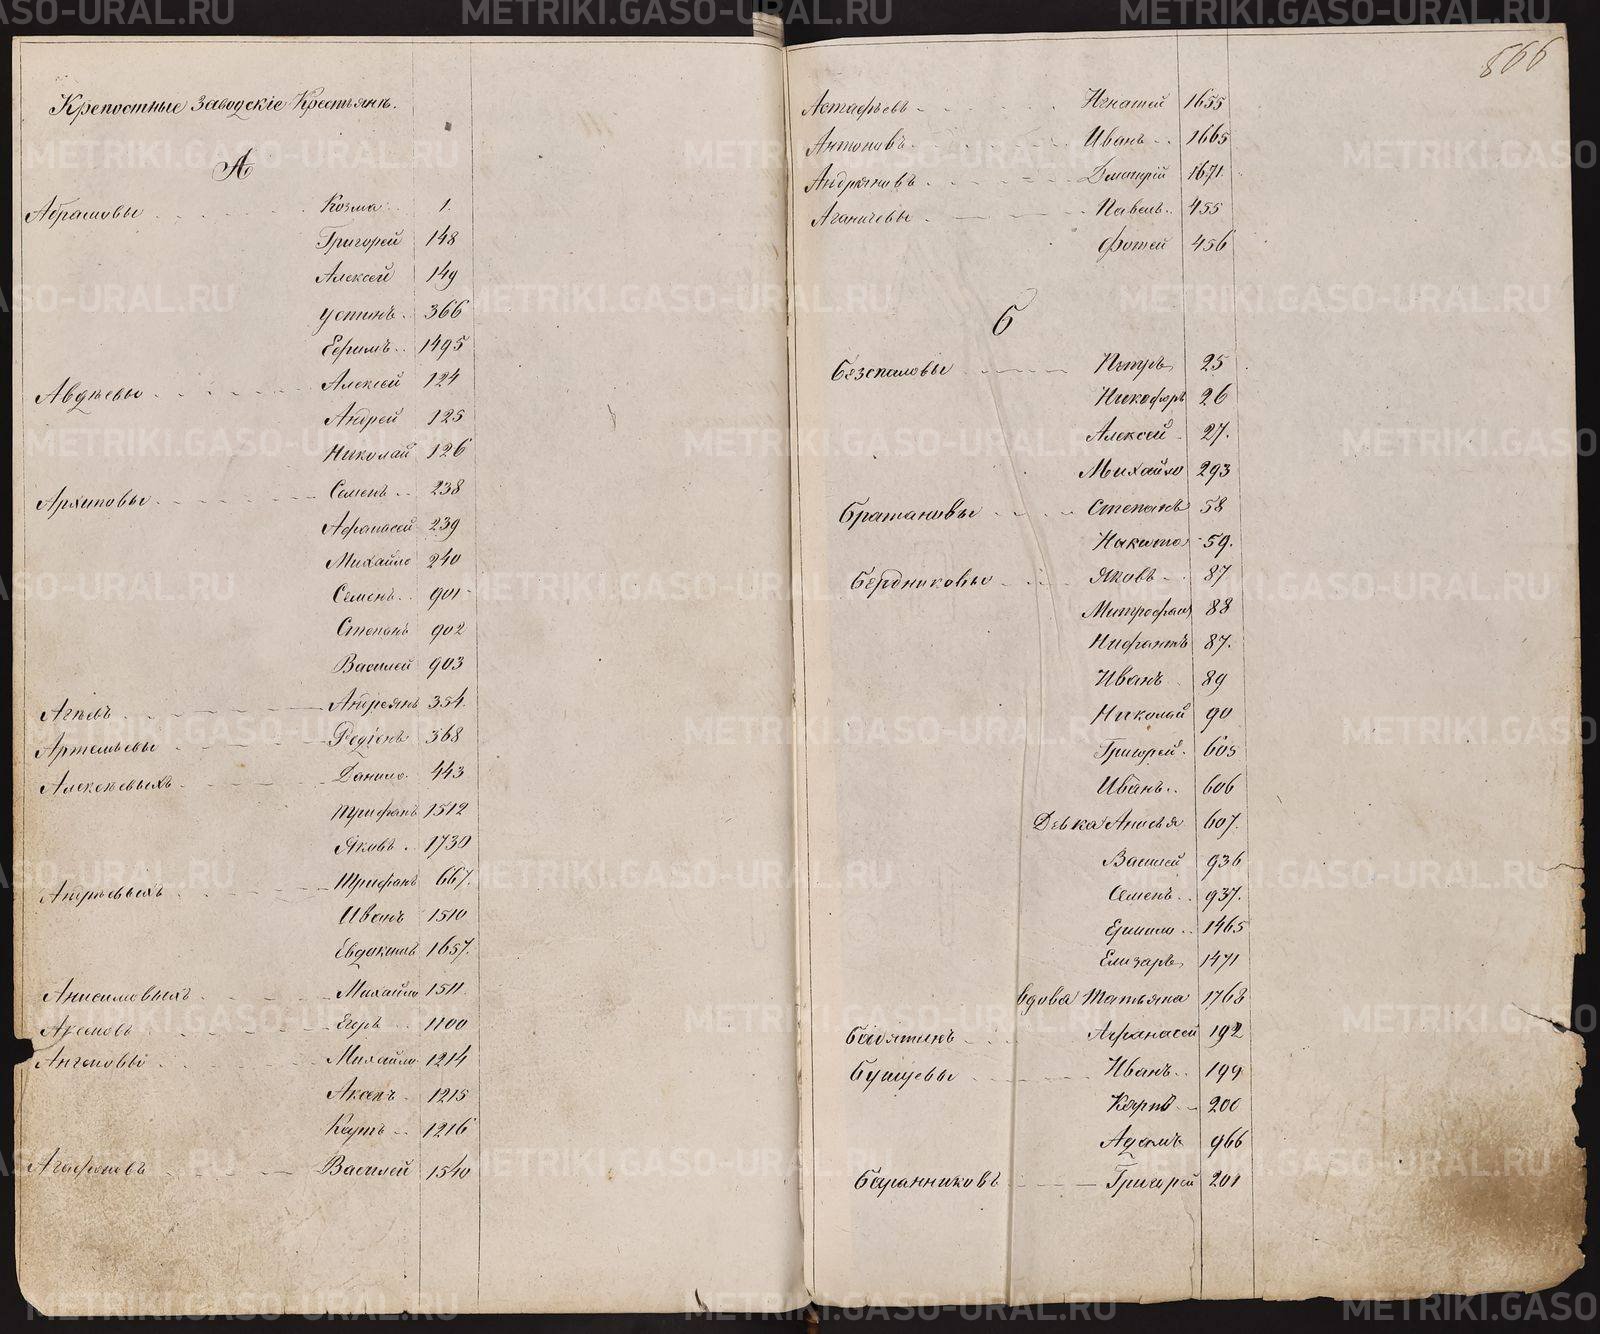 Крепостные Заводскіе Крестьяне.
А
Абрамовы Козма 1.
Григорей 148
Алексей 149
Устинъ 366
Ефимъ 1495
Авдѣевы Алексей 124
Андрей 125
Николай 126
Архиповы Семенъ 238
Афанасей 239
Михайло 240
Семенъ 901
Степанъ 902
Василей 903
Агѣевъ Андреянъ 354.
Артемьевы Родіонъ 368
Алексѣевыхъ Данило 443
Трифанъ 1512
Яковъ 1730
Андрѣевыхъ Трифанъ 667.
Иванъ 1510
Евдокимъ 1657.
Анисимовыхъ Михайло 1511.
Аксеновъ Егоръ 1100
Антоновы Михайло 1214
1215
1216
Агафоновъ Василей 1540
866
Астафьевъ Игнатей 1655
Антоновъ Иванъ 1665
Андреяновъ Дмитрій 1671.
Аганичевы Павелъ 455
Фотей 456
Б
Безспаловы Петръ 25
Никофоръ 26
Алексей 27.
Михайло 293
Братановы Степанъ 58
Никита 59.
Бердниковы Яковъ 87
Митрофанъ 88
Нифантъ 87.
Иванъ 89
Николай 90
Григорей 605
Иванъ 606
Девка Анисья 607.
Василей 936
Семенъ 937.
Ермило 1465
Елизаръ 1471
вдова Татьяна 1768
Афанасей 192
Бушуевы Иванъ 199
Карпъ 200
Адамъ 966
Баранниковъ Григорей 201
METRIKI.GASO-URAL.RU